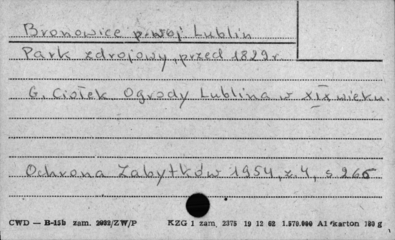 Bronowice p. woj. Lublin
Park zdrojowy, przed 1829 r
G. Ciołek Ogrody Lublina w XIX wieku.
Ochrona Zabytków 1954, z. 4, s 266
CWD — B-15b zam. 2093/ZW/P KZG 1 zam. 2375 19 12 62 1.570.000 A1 karton 180 g